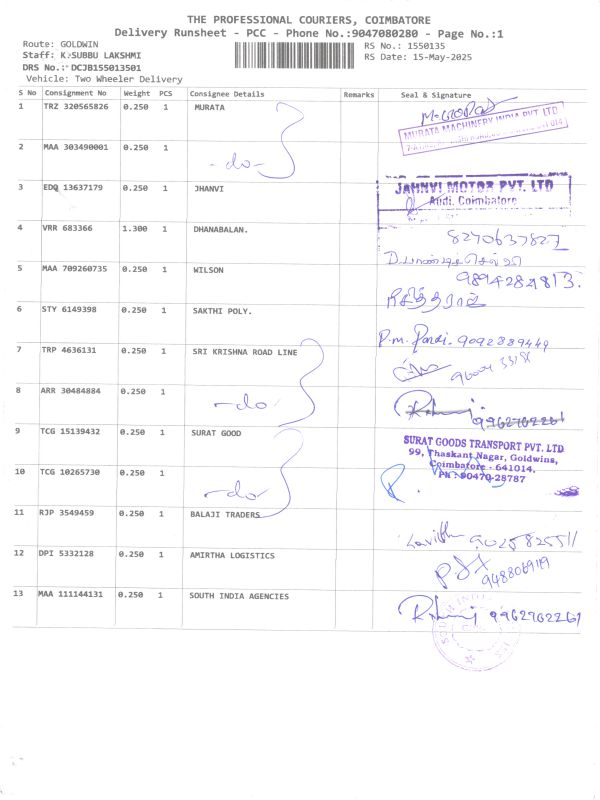 THE PROFESSIONAL COURIERS, COIMBATORE
Delivery Runsheet - PCC - Phone No.:9047080280 - Page No.:1
Route: GOLDWIN RS No.: 1550135
Staff: K.SUBBU LAKSHMI RS Date: 15-May-2025
DRS No.: DCJB155013501
Vehicle: Two Wheeler Delivery
S No Consignment No Weight PCS Consignee Details Remarks Seal & Signature
1 TRZ 320565826 0.250 1 MURATA
MURATA MACHINERY INDIA PVT LTD
2 MAA 303490001 0.250 1 -do-
3 EDQ 13637179 0.250 1 JHANVI JAHNVI MOTOR PVT. LTD
Coimbatore
4 VRR 683366 1.300 1 DHANABALAN. 8270637827
5 MAA 709260735 0.250 1 WILSON 9894282813.
6 STY 6149398 0.250 1 SAKTHI POLY. P.m. Pandi. 9092889449
7 TRP 4636131 0.250 1 SRI KRISHNA ROAD LINE
8 ARR 30484884 0.250 1 -do- 9962762261
9 TCG 15139432 0.250 1 SURAT GOOD SURAT GOODS TRANSPORT PVT. LTD
99, Thaskant Nagar, Goldwins,
Coimbatore - 641014.
PH : 90470-28787
10 TCG 10265730 0.250 1 -do-
11 RJP 3549459 0.250 1 BALAJI TRADERS 9025825511
12 DPI 5332128 0.250 1 AMIRTHA LOGISTICS
13 MAA 111144131 0.250 1 SOUTH INDIA AGENCIES 9962762261